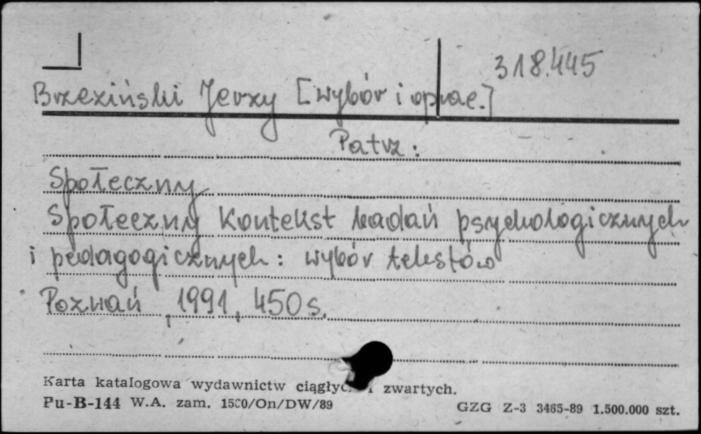 318.445
Brzeziński Jerzy [wybór i oprac.]
Patrz:
Społeczny
Społeczny kontekst badań psychologicznych
i pedagogicznych: wybór tekstów
Poznań, 1991, 450 s.
Karta katalogowa wydawnictw ciągłyc i zwartych.
Pu-B-144 W.A. zam. 1500/On/DW/89
GZG Z-3 3465-89 1.500.000 szt.